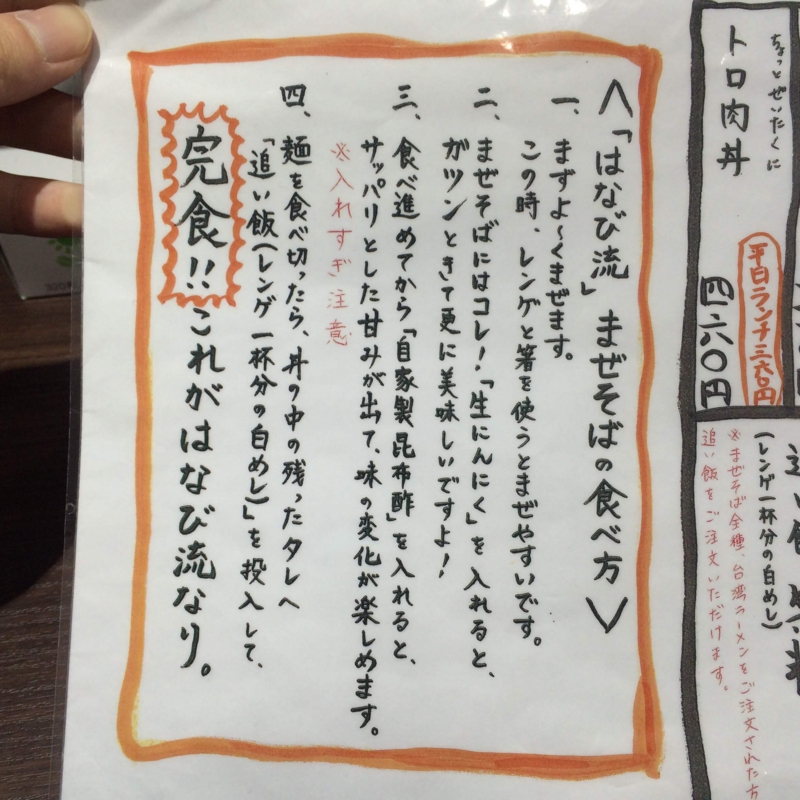 ちょっとぜいたくに
トロ肉丼
平日ランチ三六〇円
四六〇円
(レンゲ一杯分の白めし)
※まぜそば全種、台湾ラーメンをご注文された方
追い飯をご注文いただけます。
＜「はなび流」まぜそばの食べ方＞
一、まずよ〜くまぜます。
この時、レンゲと箸を使うとまぜやすいです。
二、まぜそばにはコレ！「生にんにく」を入れると、
ガツンときて更に美味しいですよ！
三、食べ進めてから「自家製昆布酢」を入れると、
サッパリとした甘みが出て、味の変化が楽しめます。
※入れすぎ注意
四、麺を食べ切ったら、丼の中の残ったタレへ
「追い飯(レンゲ一杯分の白めし)」を投入して、
完食!!これがはなび流なり。